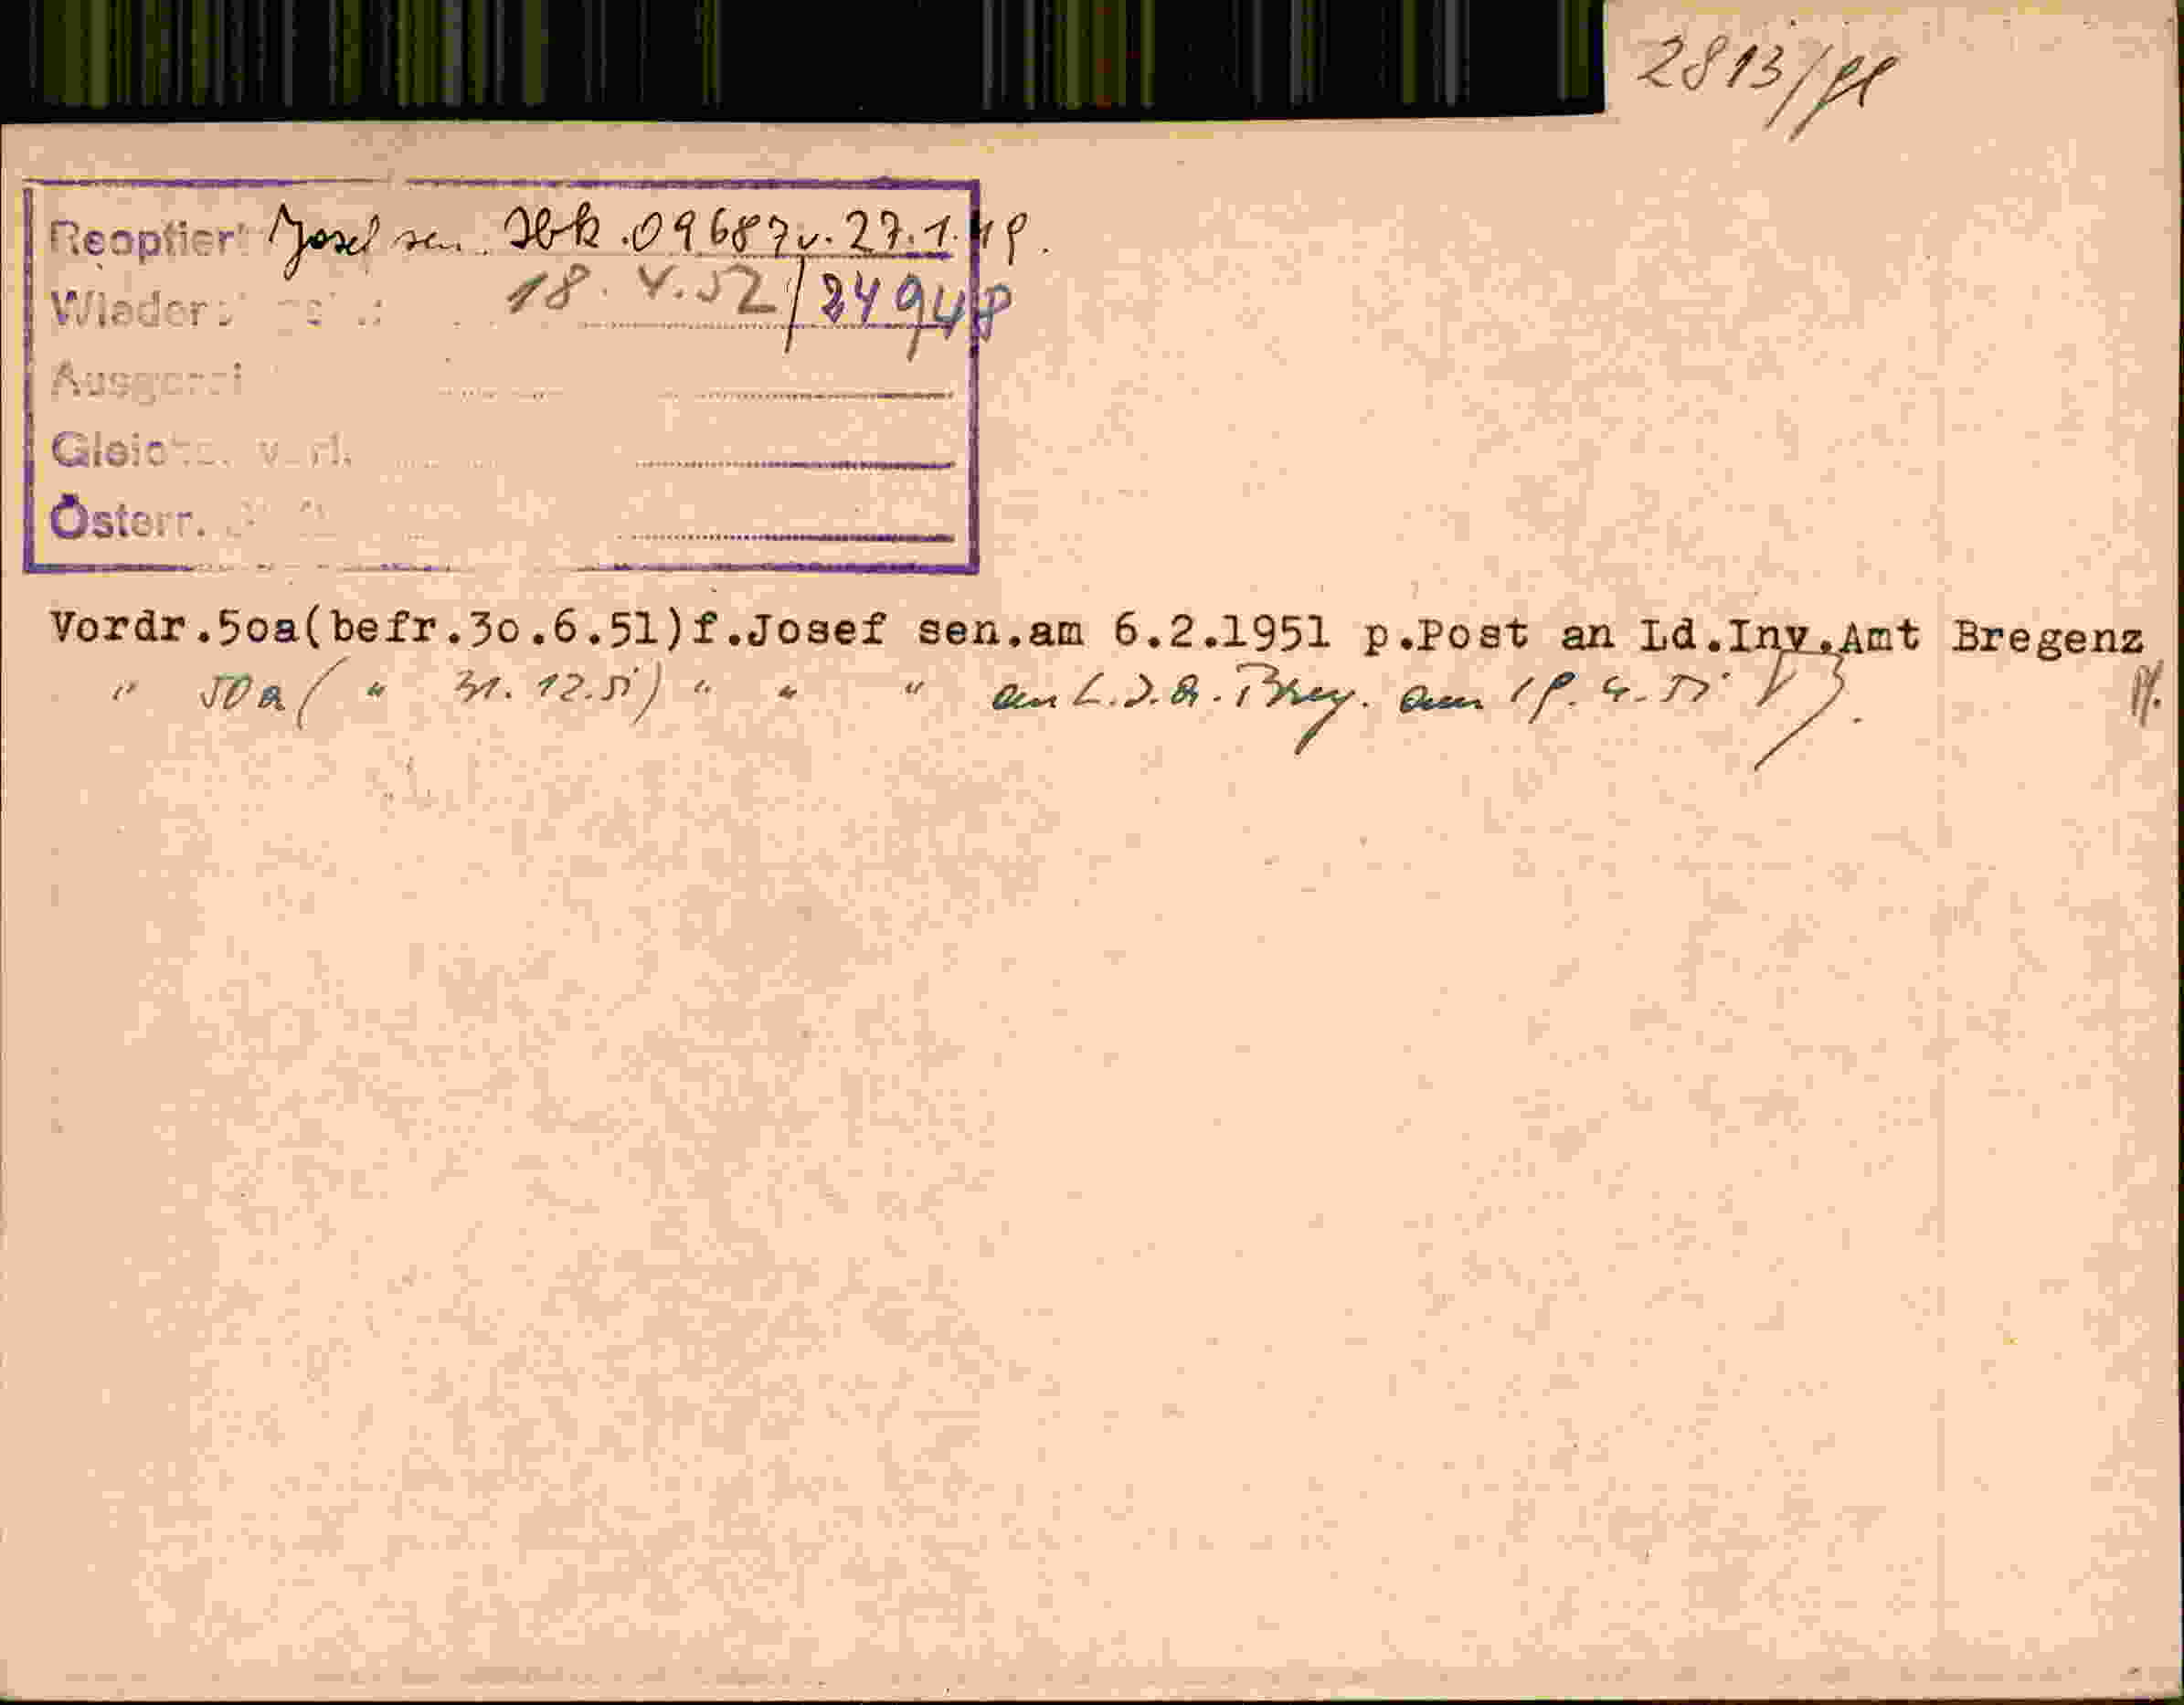 2813/
Reoptiert Josef sen. Ibk. 09687 v. 27.1.49.
18. V. 52/24948
Österr.
Vordr.5oa(befr.3o.6.51)f.Josef sen.am 6.2.1951 p.Post an Ld.Inv.Amt Bregenz
" 50a ( " 31.12.51) " " " an L.I.A. Breg. am 19.4.51